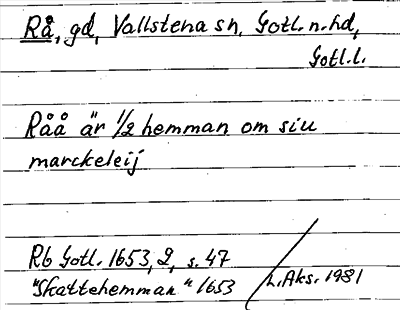 Rå, gd, Vallstena sn, Gotl. n. hd,
Gotl. l.
Råå är 1/2 hemman om siu
marckeleij
Rb Gotl. 1653, 2, s. 47
"Skattehemman" 1653
L. Aks. 1981